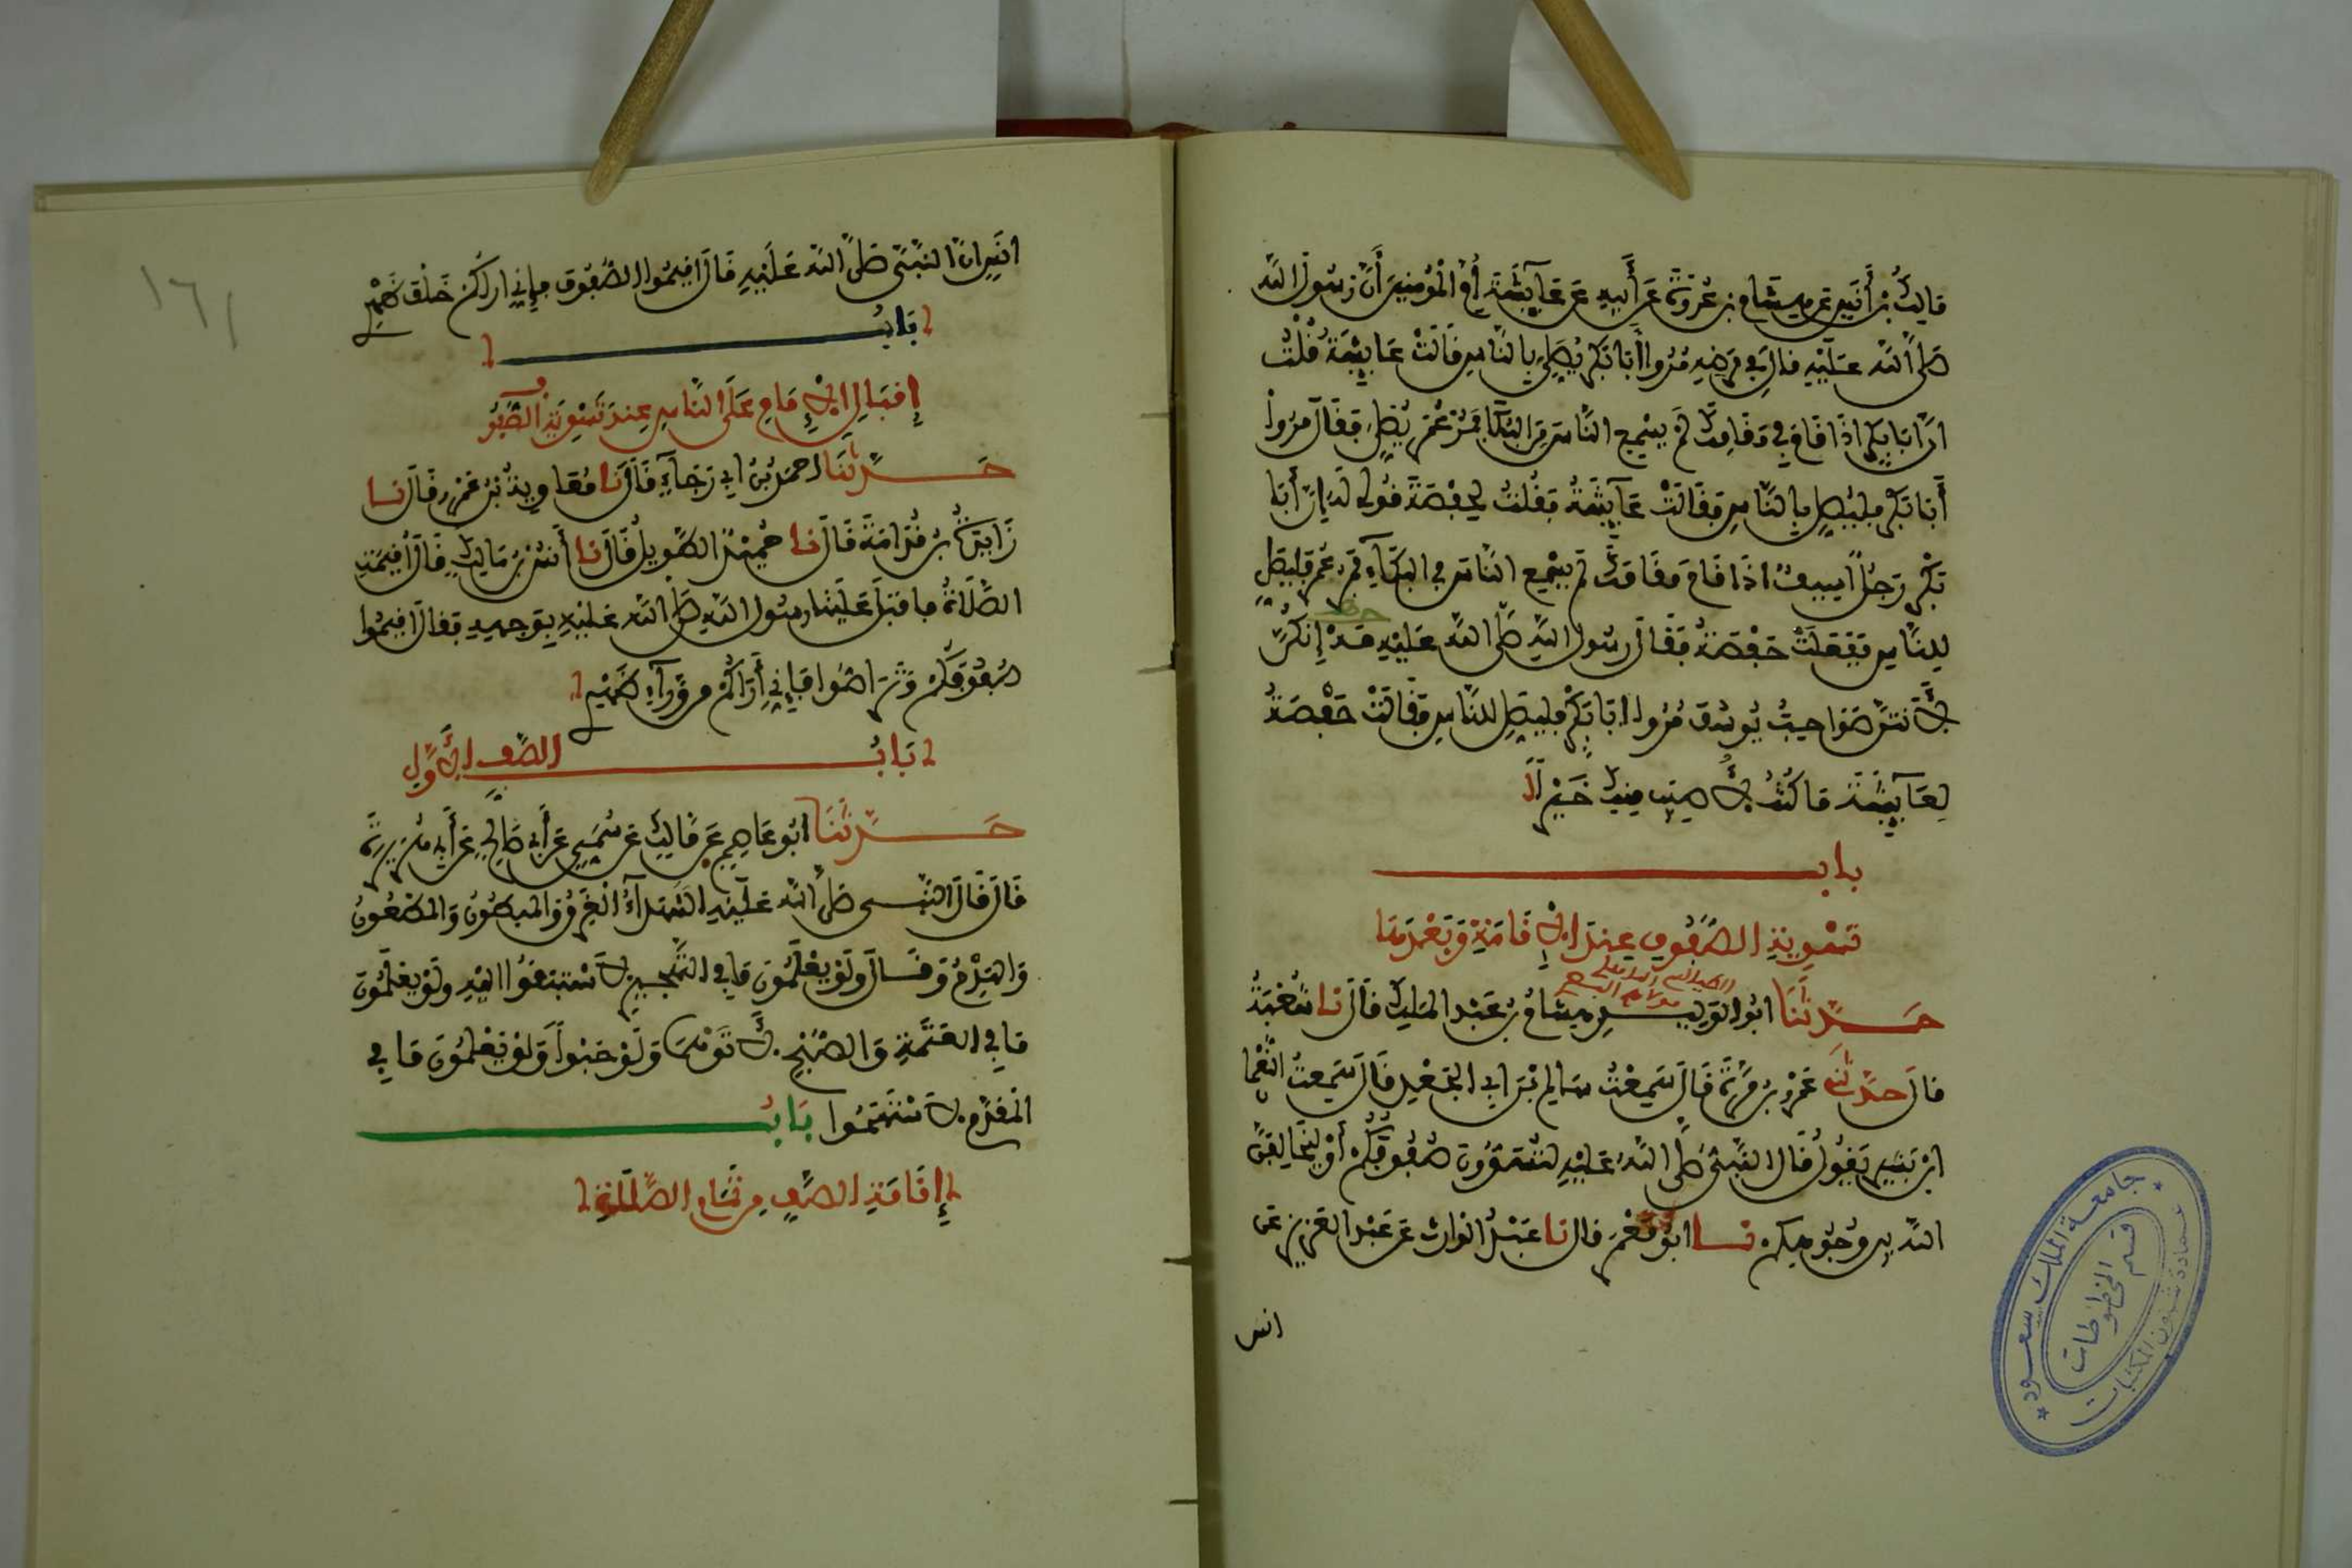 مَالِكُ بْنُ أَنَسٍ عَن هِشَامِ بن عُرْوَةَ عَن أَبِيهِ عَن عَآئِشَةَ أُمِّ الْمُؤمِنِينَ أَنَّ رَسُولَ اللَّهِ
صَلَّى اللَّه عَلَيْهِ قال فِي مَرَضِهِ مُرُوا أَبَا بَكْرٍ يُصَلِّي بِالنَّاسِ قَالَتْ عَايِشَةُ قُلْتُ
انَّ ابَا بَكْرٍ اذَا قَامَ فِي مَقَامِكَ لَمْ يُسْمِعِ النَّاسَ مِنَ الْبُكَا فَمُرْ عُمَرَ يُصَلِّ فَقَالَ مُرُوا
أَبَا بَكْرٍ فليُصَلِّ بِالنَّاسِ فَقَالَتْ عَآيِشَةُ فَقُلتُ لِحَفْصَةَ قُولِي لَهُ إِنَّ أَبَا
بَكْرٍ رَجُلٌ اسِيفٌ اذَا قَامَ مَقَامَكَ لَم يُسْمِعِ النَّاسَ مِن الْبُكَآءِ فَمُر عُمَرَ فَليُصَلِّ
لِلنَّاسِ فَفَعَلَتْ حَفْصَةُ فَقَالَ رسُولُ اللَّهِ صَلَّى اللَّه عَلَيْهِ مَهْ إِنَّكُنَّ
لَأَنْتُنَّ صَوَاحِبُ يُوسُفَ مُرُوا ابَا بَكْرٍ فليُصَلِّ لِلنَّاسِ فَقَالَتْ حَفْصَةُ
لِعَآيِشَةَ مَا كُنْتُ لِأُصِيبَ مِنكِ خَيْراً
باب
تَسْوِيَةِ الصُّفُوفِ عِندَ الْإِقَامَةِ وَبَعْدَهَا
حَدَّثَنَا ابُو الوَلِيدِ هِشَامُ بنُ عَبْدِ المَلِكِ قَالَ نا شُعْبَةُ
قالَ حدَّثَنِي عَمْرُو بنُ مُرَّةَ قَالَ سَمِعْتُ سَالِمَ بْنَ ابِي الجَعْدِ قَالَ سَمِعتُ النُّعْمَا
ابنَ بَشِيرٍ يَقُولُ قَالَ النَّبِيُّ صَلَّى اللَّهُ عَلَيْهِ لَتُسَوُّنَّ صُفُوفَكُمْ أَوْ لَيُخَالِفَنَّ
اللَّه بين وُجُوهِكم نا ابُو مَعْمَرٍ قال نا عَبْدُ الوَارث عَن عَبْدِ العَزِيزِ عَن
انس
انَسٍ انَّ النَّبِيَّ صَلَّى اللَّه عَلَيْهِ قَالَ اقِيمُوا الصُّفُوفَ فإِنِّي اراكُمْ خَلْفَ ظَهْرِي
بَابُ
إِقبَالِ الْإِمَامِ عَلَى النَّاسِ عِندَ تَسْوِيَةِ الصُّفُوف
حَدَّثَنَا احمَدُ بْنُ ابِي رَجَآءٍ قَالَ نا مُعَاوِيَةُ بْنُ عَمْرٍو قَالَ نا
زَايِدَةُ بنُ قُدَامَةَ قَالَ نا حُمَيْدٌ الطَّوِيلُ قَالَ نا أَنَسُ بنُ مَالِكٍ قَالَ أُقِيمَتِ
الصَّلَاةُ فاقبَلَ عَلَيْنَا رسُولُ اللَّهِ صَلَّى اللَّه عَلَيْهِ بِوَجهِهِ فقالَ اقِيمُوا
صُفُوفَكُمْ وَتَرَاصُّوا فَإِنِّي أَرَاكُمْ مِن وَّرَآءِ ظَهْرِي
بَابُ الصَّفِّ الْأَوَّلِ
حَدَّثَنَا ابُو عَاصِمٍ عَن مَّالِكٍ عَن سُمَيٍّ عَن أَبِي صَالِحٍ عَن أَبِي هُرَيْرَةَ
قَالَ قَالَ النَّبِي صَلَّى اللَّه عَلَيْهِ الشُّهَدَآءُ الْغَرِقُ وَالمَبطُونُ وَالمَطعُونُ
وَالهَدْمُ وَقَالَ وَلَوْ يَعْلَمُونَ مَا فِي التَّهْجِيرِ لَاسْتَبَقُوا الَيْهِ وَلَوْ يَعْلَمُونَ
مَا فِي العَتَمَةِ وَالصُّبْحِ لَأَتَوْهُمَا وَلَوْ حَبْواً وَلَوْ يَعْلَمُونَ مَا فِي
المُقَدَّمِ لَاسْتَهَمُوا بَابُ
إِقَامَةِ الصَّفِّ مِن تَمَامِ الصَّلَاةِ
١٦١
جامعة الملك سعود
عمادة شئون المكتبات
قسم المخطوطات